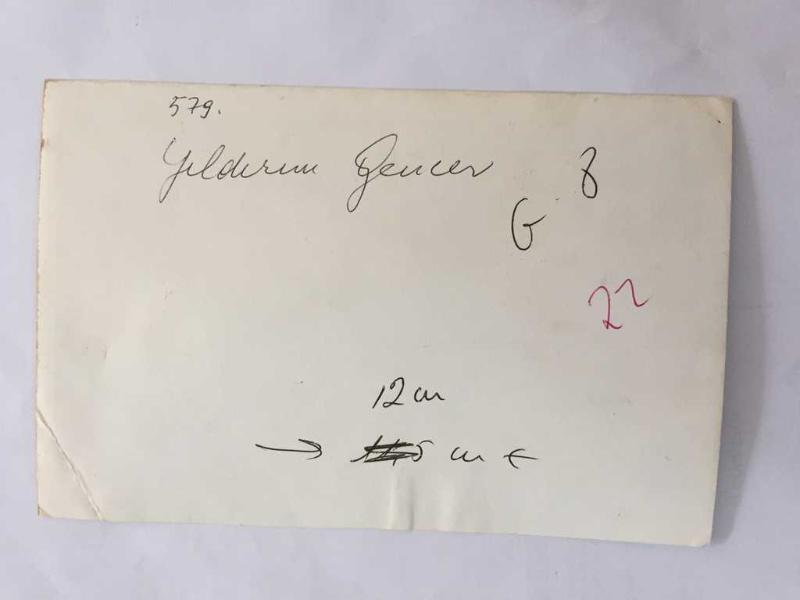 579.
Yıldırım Gencer 8
G
22
12 cm
→ 5 cm ←